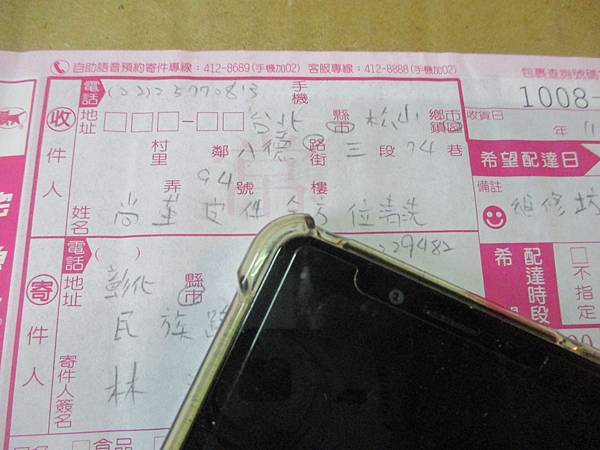 自助語音預約寄件專線：412-8689(手機加02) 客服專線：412-8888(手機加02)
包裹查詢號碼
1008-
電話 (02)25770813 手機
收件人
地址 台北 縣市 松山 鄉鎮市區
村里 鄰 八德 路街 三 段 74 巷
弄 94 號 樓
姓名 尚 皮件全方位清洗
收貨日 年
希望配達日
備註 維修坊
希 配達時段
不指定
寄件人
電話 ( ) 29482
地址 彰化 縣市
民族路
寄件人簽名 林
食品